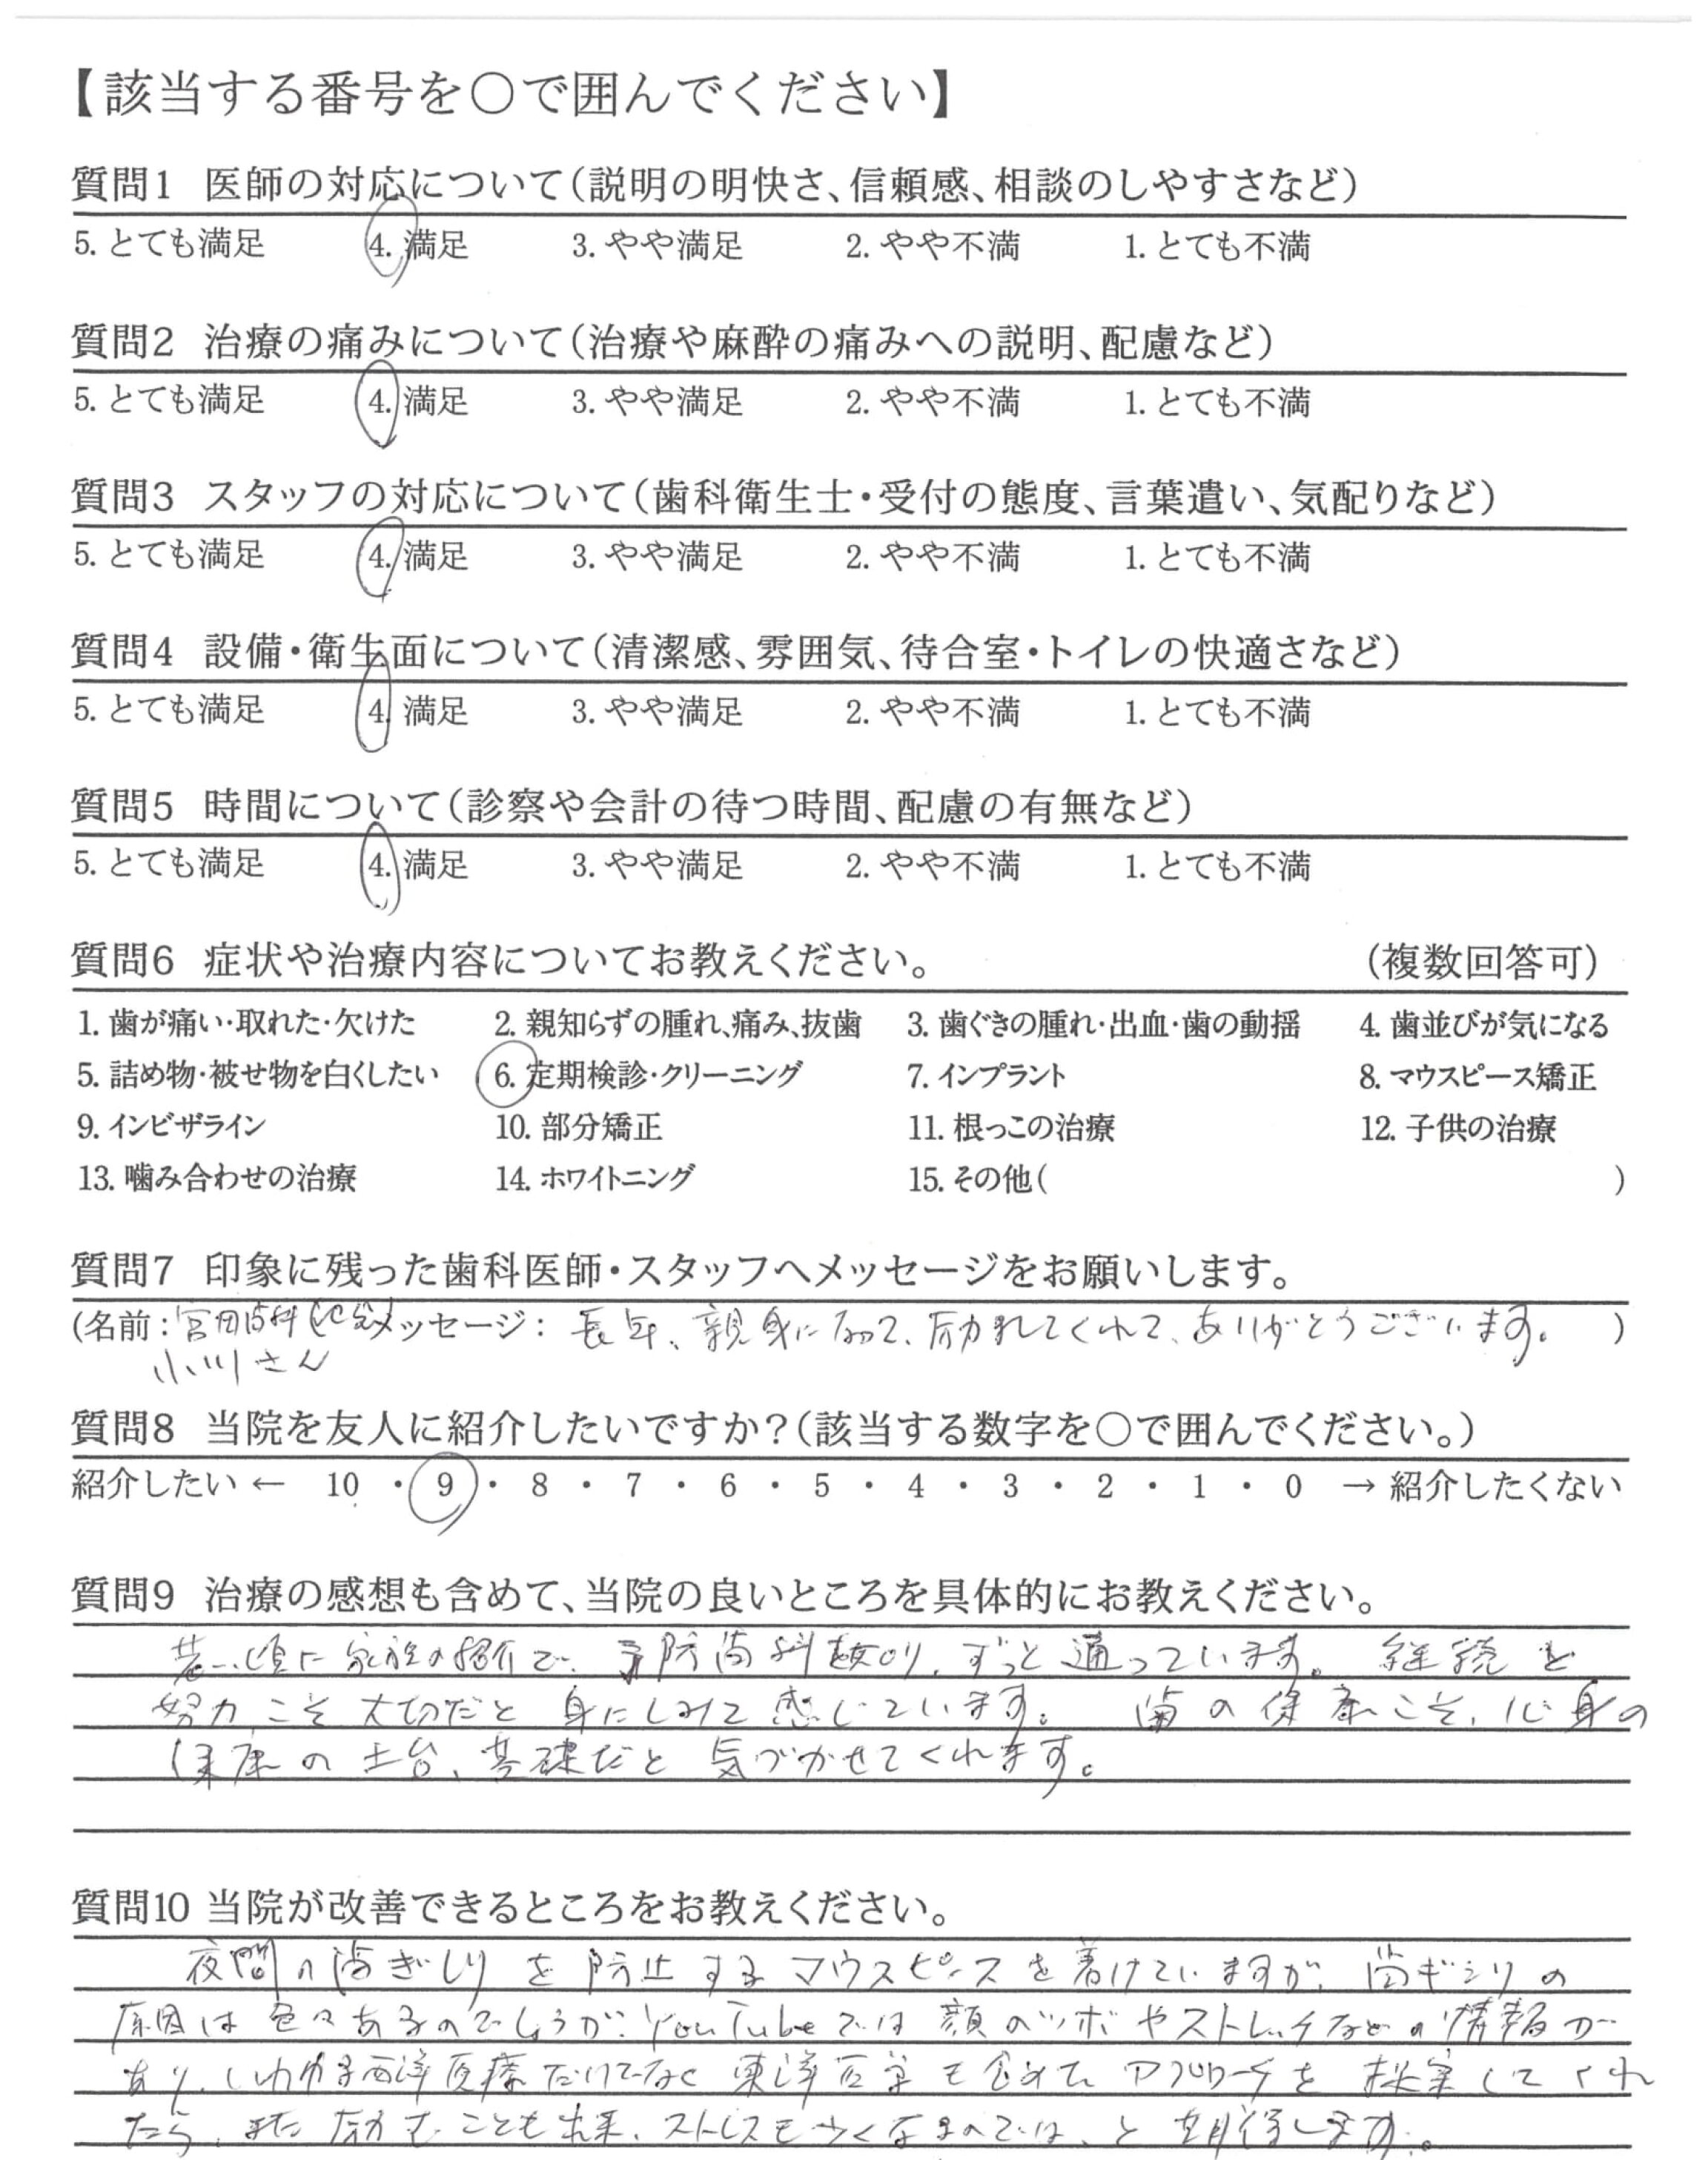 【該当する番号を〇で囲んでください】
質問1 医師の対応について(説明の明快さ、信頼感、相談のしやすさなど)
5. とても満足 4. 満足 3. やや満足 2. やや不満 1. とても不満
質問2 治療の痛みについて(治療や麻酔の痛みへの説明、配慮など)
5. とても満足 4. 満足 3. やや満足 2. やや不満 1. とても不満
質問3 スタッフの対応について(歯科衛生士・受付の態度、言葉遣い、気配りなど)
5. とても満足 4. 満足 3. やや満足 2. やや不満 1. とても不満
質問4 設備・衛生面について(清潔感、雰囲気、待合室・トイレの快適さなど)
5. とても満足 4. 満足 3. やや満足 2. やや不満 1. とても不満
質問5 時間について(診察や会計の待つ時間、配慮の有無など)
5. とても満足 4. 満足 3. やや満足 2. やや不満 1. とても不満
質問6 症状や治療内容についてお教えください。 (複数回答可)
1. 歯が痛い・取れた・欠けた 2. 親知らずの腫れ、痛み、抜歯 3. 歯ぐきの腫れ・出血・歯の動揺 4. 歯並びが気になる
5. 詰め物・被せ物を白くしたい 6. 定期検診・クリーニング 7. インプラント 8. マウスピース矯正
9. インビザライン 10. 部分矯正 11. 根っこの治療 12. 子供の治療
13. 噛み合わせの治療 14. ホワイトニング 15. その他( )
質問7 印象に残った歯科医師・スタッフへメッセージをお願いします。
(名前: 宮田歯科 メッセージ: 長年、親身になって、励ましてくれて、ありがとうございます。 )
小川さん
質問8 当院を友人に紹介したいですか?(該当する数字を〇で囲んでください。)
紹介したい ← 10 ・ 9 ・ 8 ・ 7 ・ 6 ・ 5 ・ 4 ・ 3 ・ 2 ・ 1 ・ 0 → 紹介したくない
質問9 治療の感想も含めて、当院の良いところを具体的にお教えください。
若い頃に家族の紹介で、予防歯科を知り、ずっと通っています。 継続と
努力こそ大切だと身にしみて感じています。 歯の健康こそ、心身の
健康の土台、基礎だと気づかせてくれます。
質問10 当院が改善できるところをお教えください。
夜間の歯ぎしりを防止するマウスピースを着けていますが、歯ギシリの
原因は色々あるのでしょうが、YouTubeでは顔のツボやストレッチなどの情報が
あり、いわゆる西洋医療だけでなく東洋医学も含めたアプローチを提案してくれ
たら、また励むことも出来、ストレスも少くなるのでは、と期待します。